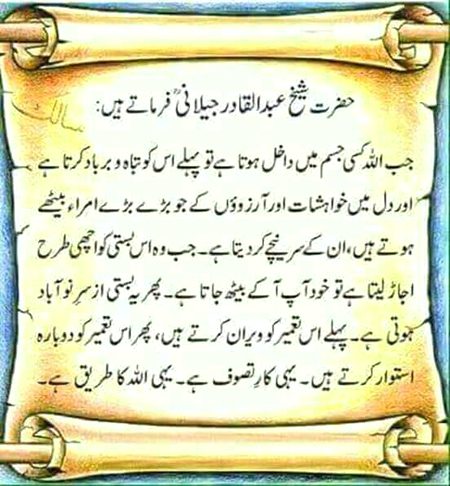 حضرت شیخ عبدالقادر جیلانیؒ فرماتے ہیں:
سالک
جب اللہ کسی جسم میں داخل ہوتا ہے تو پہلے اس کو تباہ و برباد کرتا ہے
اور دل میں خواہشات اور آرزوؤں کے جو بڑے بڑے امراء بیٹھے
ہوتے ہیں، ان کے سر نیچے کر دیتا ہے۔ جب وہ اس بستی کو اچھی طرح
اجاڑ لیتا ہے تو خود آپ آ کے بیٹھ جاتا ہے۔ پھر یہ بستی از سرِ نو آباد
ہوتی ہے۔ پہلے اس تعمیر کو ویران کرتے ہیں، پھر اس تعمیر کو دوبارہ
استوار کرتے ہیں۔ یہی کارِ تصوف ہے۔ یہی اللہ کا طریق ہے۔